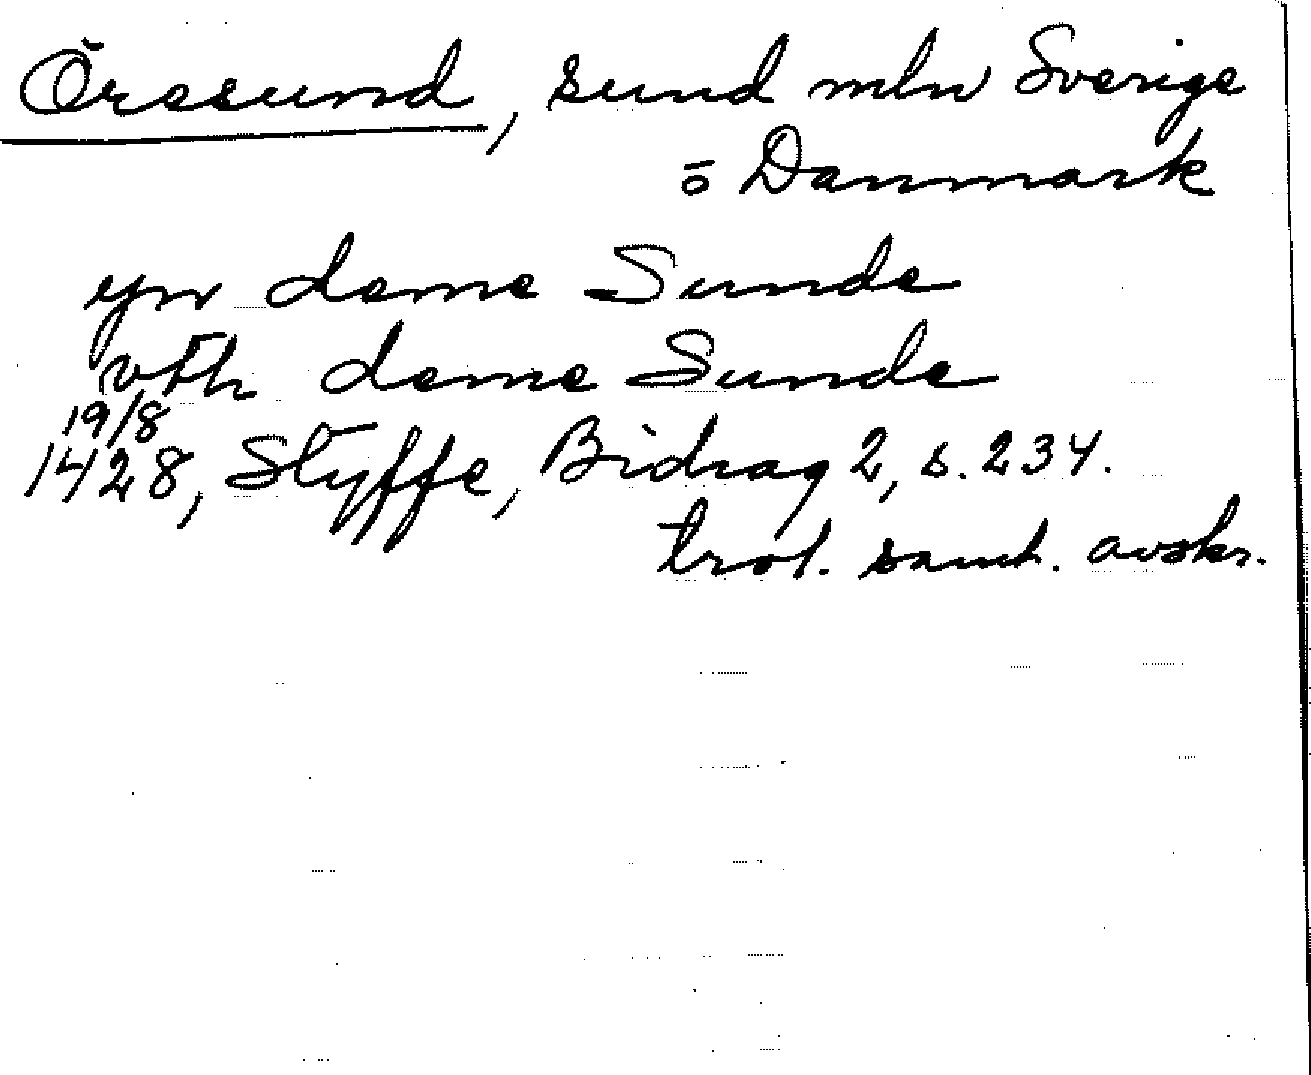 Öresund, sund mln Sverige
o Danmark
yn deme Sunde
vth deme Sunde
19/8
1428, Styffe, Bidrag 2, s. 234.
trol. samt. avskr.